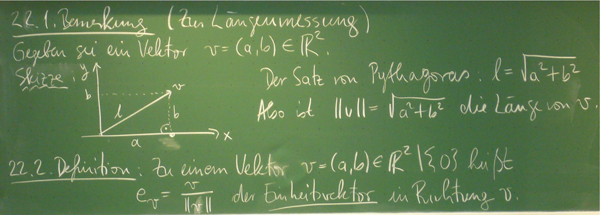 22.1. Bemerkung (Zur Längenmessung)
Gegeben sei ein Vektor v = (a,b) ∈ ℝ².
Skizze:
y
b
l
v
b
a
x
Der Satz von Pythagoras: l = √(a²+b²)
Also ist ||v|| = √(a²+b²) die Länge von v.
22.2. Definition: Zu einem Vektor v = (a,b) ∈ ℝ² \ {0} heißt
e_v = v/||v|| der Einheitsvektor in Richtung v.